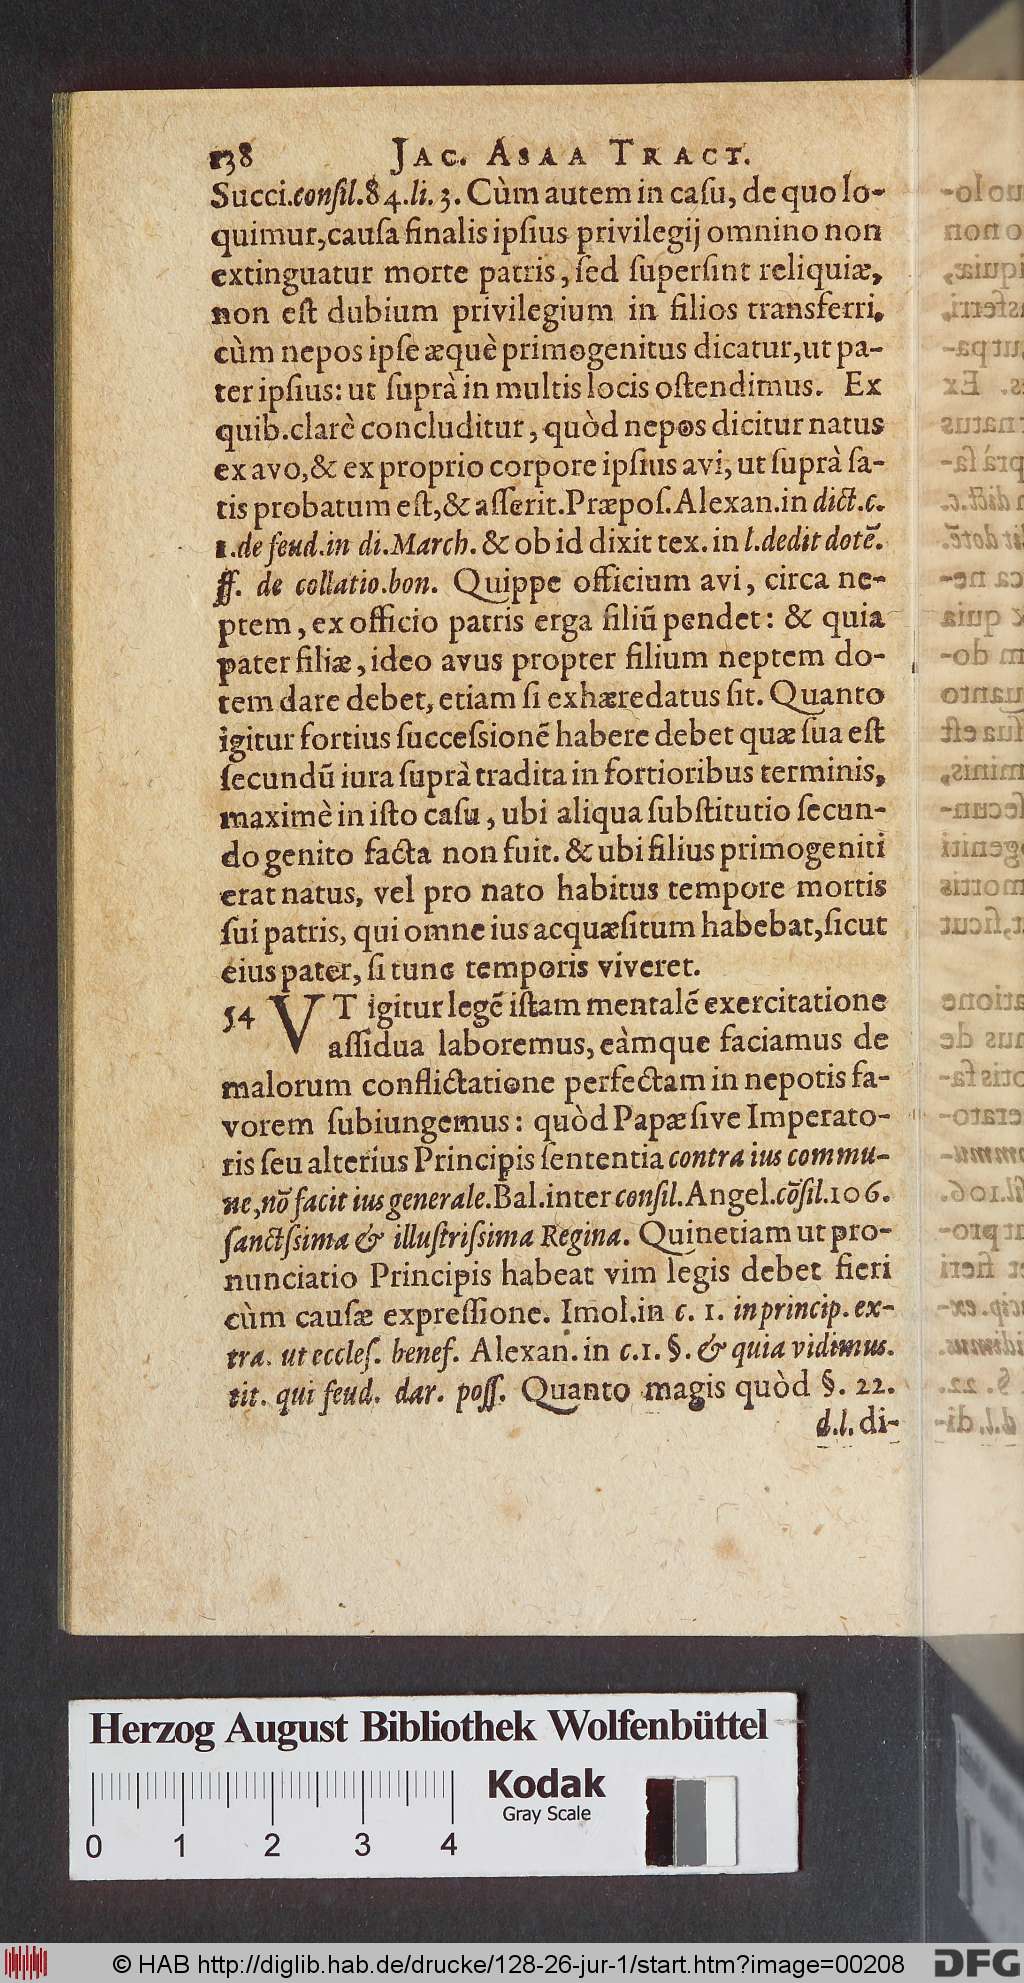 138 JAC. ASAA TRACT.
Succi.consil.84.li.3. Cùm autem in casu, de quo lo-
quimur, causa finalis ipsius privilegij omnino non
extinguatur morte patris, sed supersint reliquiæ,
non est dubium privilegium in filios transferri,
cùm nepos ipse æquè primogenitus dicatur, ut pa-
ter ipsius: ut suprà in multis locis ostendimus. Ex
quib. clarè concluditur, quòd nepos dicitur natus
ex avo, & ex proprio corpore ipsius avi, ut suprà sa-
tis probatum est, & asserit. Præpos. Alexan. in dict. c.
1. de feud. in di. March. & ob id dixit tex. in l. dedit dotē.
ff. de collatio. bon. Quippe officium avi, circa ne-
ptem, ex officio patris erga filiū pendet: & quia
pater filiæ, ideo avus propter filium neptem do-
tem dare debet, etiam si exhæredatus sit. Quanto
igitur fortius successionē habere debet quæ sua est
secundū iura suprà tradita in fortioribus terminis,
maximè in isto casu, ubi aliqua substitutio secun-
do genito facta non fuit. & ubi filius primogeniti
erat natus, vel pro nato habitus tempore mortis
sui patris, qui omne ius acquæsitum habebat, sicut
eius pater, si tunc temporis viveret.
54 VT igitur legē istam mentalē exercitatione
assidua laboremus, eàmque faciamus de
malorum conflictatione perfectam in nepotis fa-
vorem subiungemus: quòd Papæ sive Imperato-
ris seu alterius Principis sententia contra ius commu-
ne, nō facit ius generale. Bal. inter consil. Angel. cōsil. 106.
sanctssima & illustrissima Regina. Quinetiam ut pro-
nunciatio Principis habeat vim legis debet fieri
cùm causæ expressione. Imol. in c. 1. in princip. ex-
tra. ut eccles. benef. Alexan. in c. 1. §. & quia vidimus.
tit. qui feud. dar. poss. Quanto magis quòd §. 22.
d.l. di-
Herzog August Bibliothek Wolfenbüttel
Kodak
Gray Scale
0 1 2 3 4
© HAB http://diglib.hab.de/drucke/128-26-jur-1/start.htm?image=00208
DFG